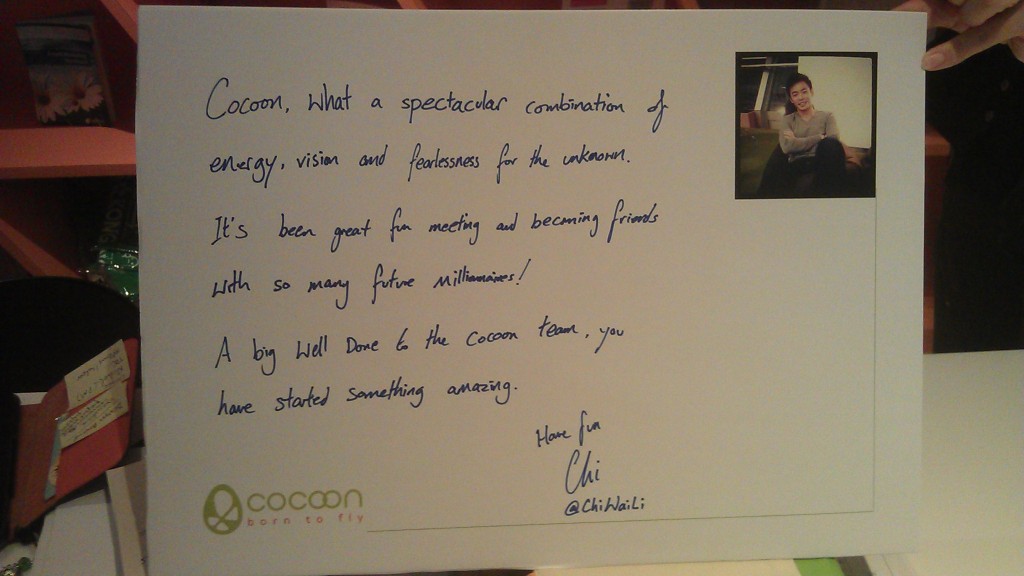 Cocoon, What a spectacular combination of
energy, vision and fearlessness for the unknown.
It's been great fun meeting and becoming friends
with so many future Millionaires!
A big Well Done to the Cocoon team, you
have started something amazing.
Have fun
Chi
@ChiWaiLi
cocoon
born to fly